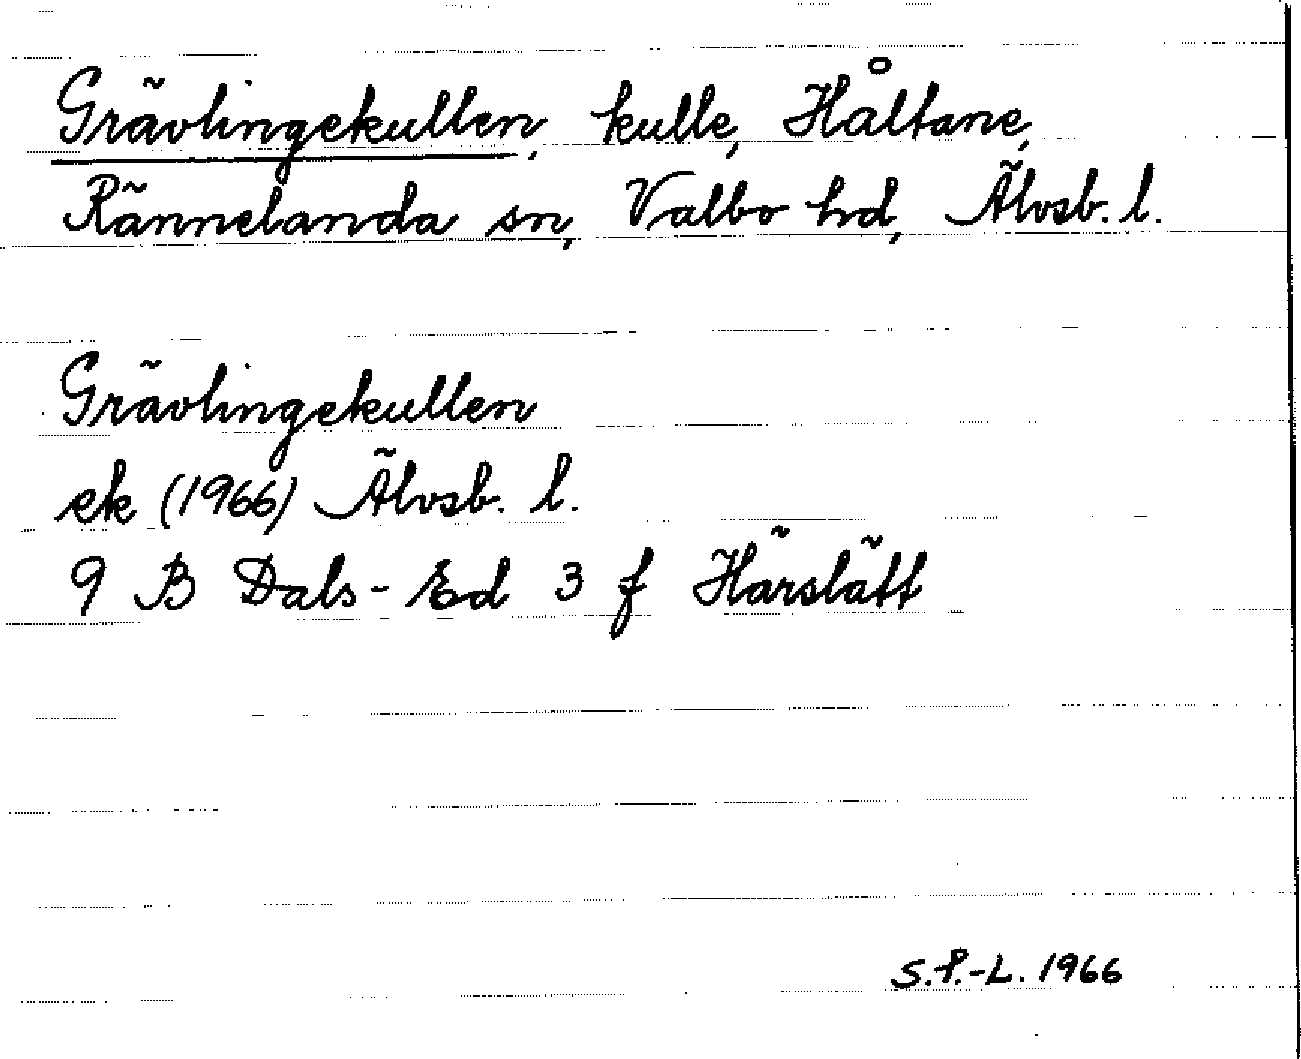 Grävlingekullen, kulle, Håltane,
Rännelanda sn, Valbo hd, Älvsb. l.
Grävlingekullen
ek (1966) Älvsb. l.
9 B Dals-Ed 3 f Härslätt
S.P.-L. 1966